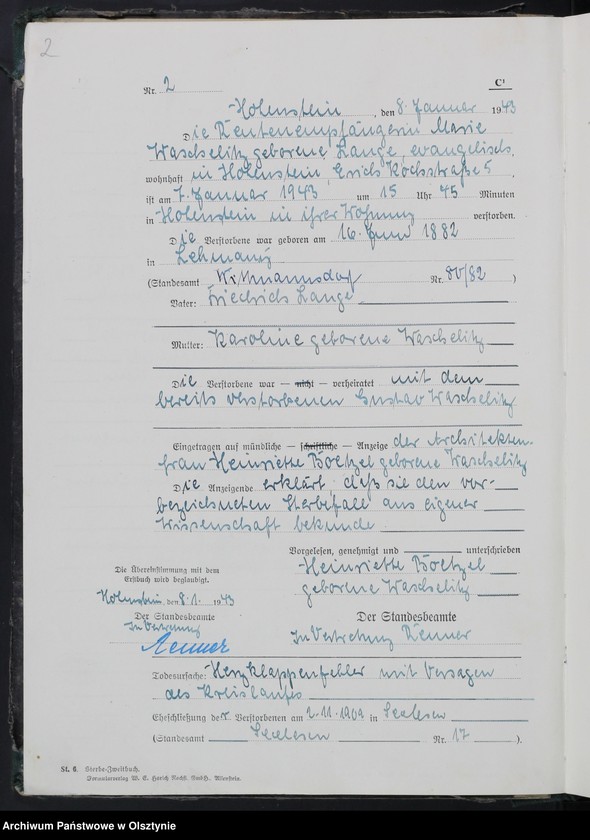 2
Nr. 2 C¹
Hohenstein, den 8. Januar 1943
Die Rentenempfängerin Marie
Waschelitz geborene Lange, evangelisch,
wohnhaft in Hohenstein, Erich Kochstraße 5,
ist am 7. Januar 1943 um 15 Uhr 45 Minuten
in Hohenstein in ihrer Wohnung verstorben.
Die Verstorbene war geboren am 16. Juni 1882
in
(Standesamt Wittmannsdorf Nr. 80/82)
Vater: Friedrich Lange
Mutter: Karoline geborene Waschelitz
Die Verstorbene war — nicht — verheiratet mit dem
bereits verstorbenen Gustav Waschelitz
Eingetragen auf mündliche — schriftliche — Anzeige der Architekten-
frau Heinriette Boetzel geborene Waschelitz
Die Anzeigende erklärt, daß sie den vor-
bezeichneten Sterbefall aus eigener
Wissenschaft bekunde
Vorgelesen, genehmigt und unterschrieben
Heinriette Boetzel
geborene Waschelitz
Die Übereinstimmung mit dem
Erstbuch wird beglaubigt.
Hohenstein, den 8.1. 1943
Der Standesbeamte
In Vertretung
Renner
Der Standesbeamte
In Vertretung Renner
Todesursache: Herzklappenfehler mit Versagen
des Kreislaufes
Eheschließung der Verstorbenen am 2.11.1909 in Seelesen
(Standesamt Seelesen Nr. 17).
St. 6. Sterbe-Zweitbuch.
Formularverlag W. E. Harich Nachf. GmbH. Allenstein.
Archiwum Państwowe w Olsztynie